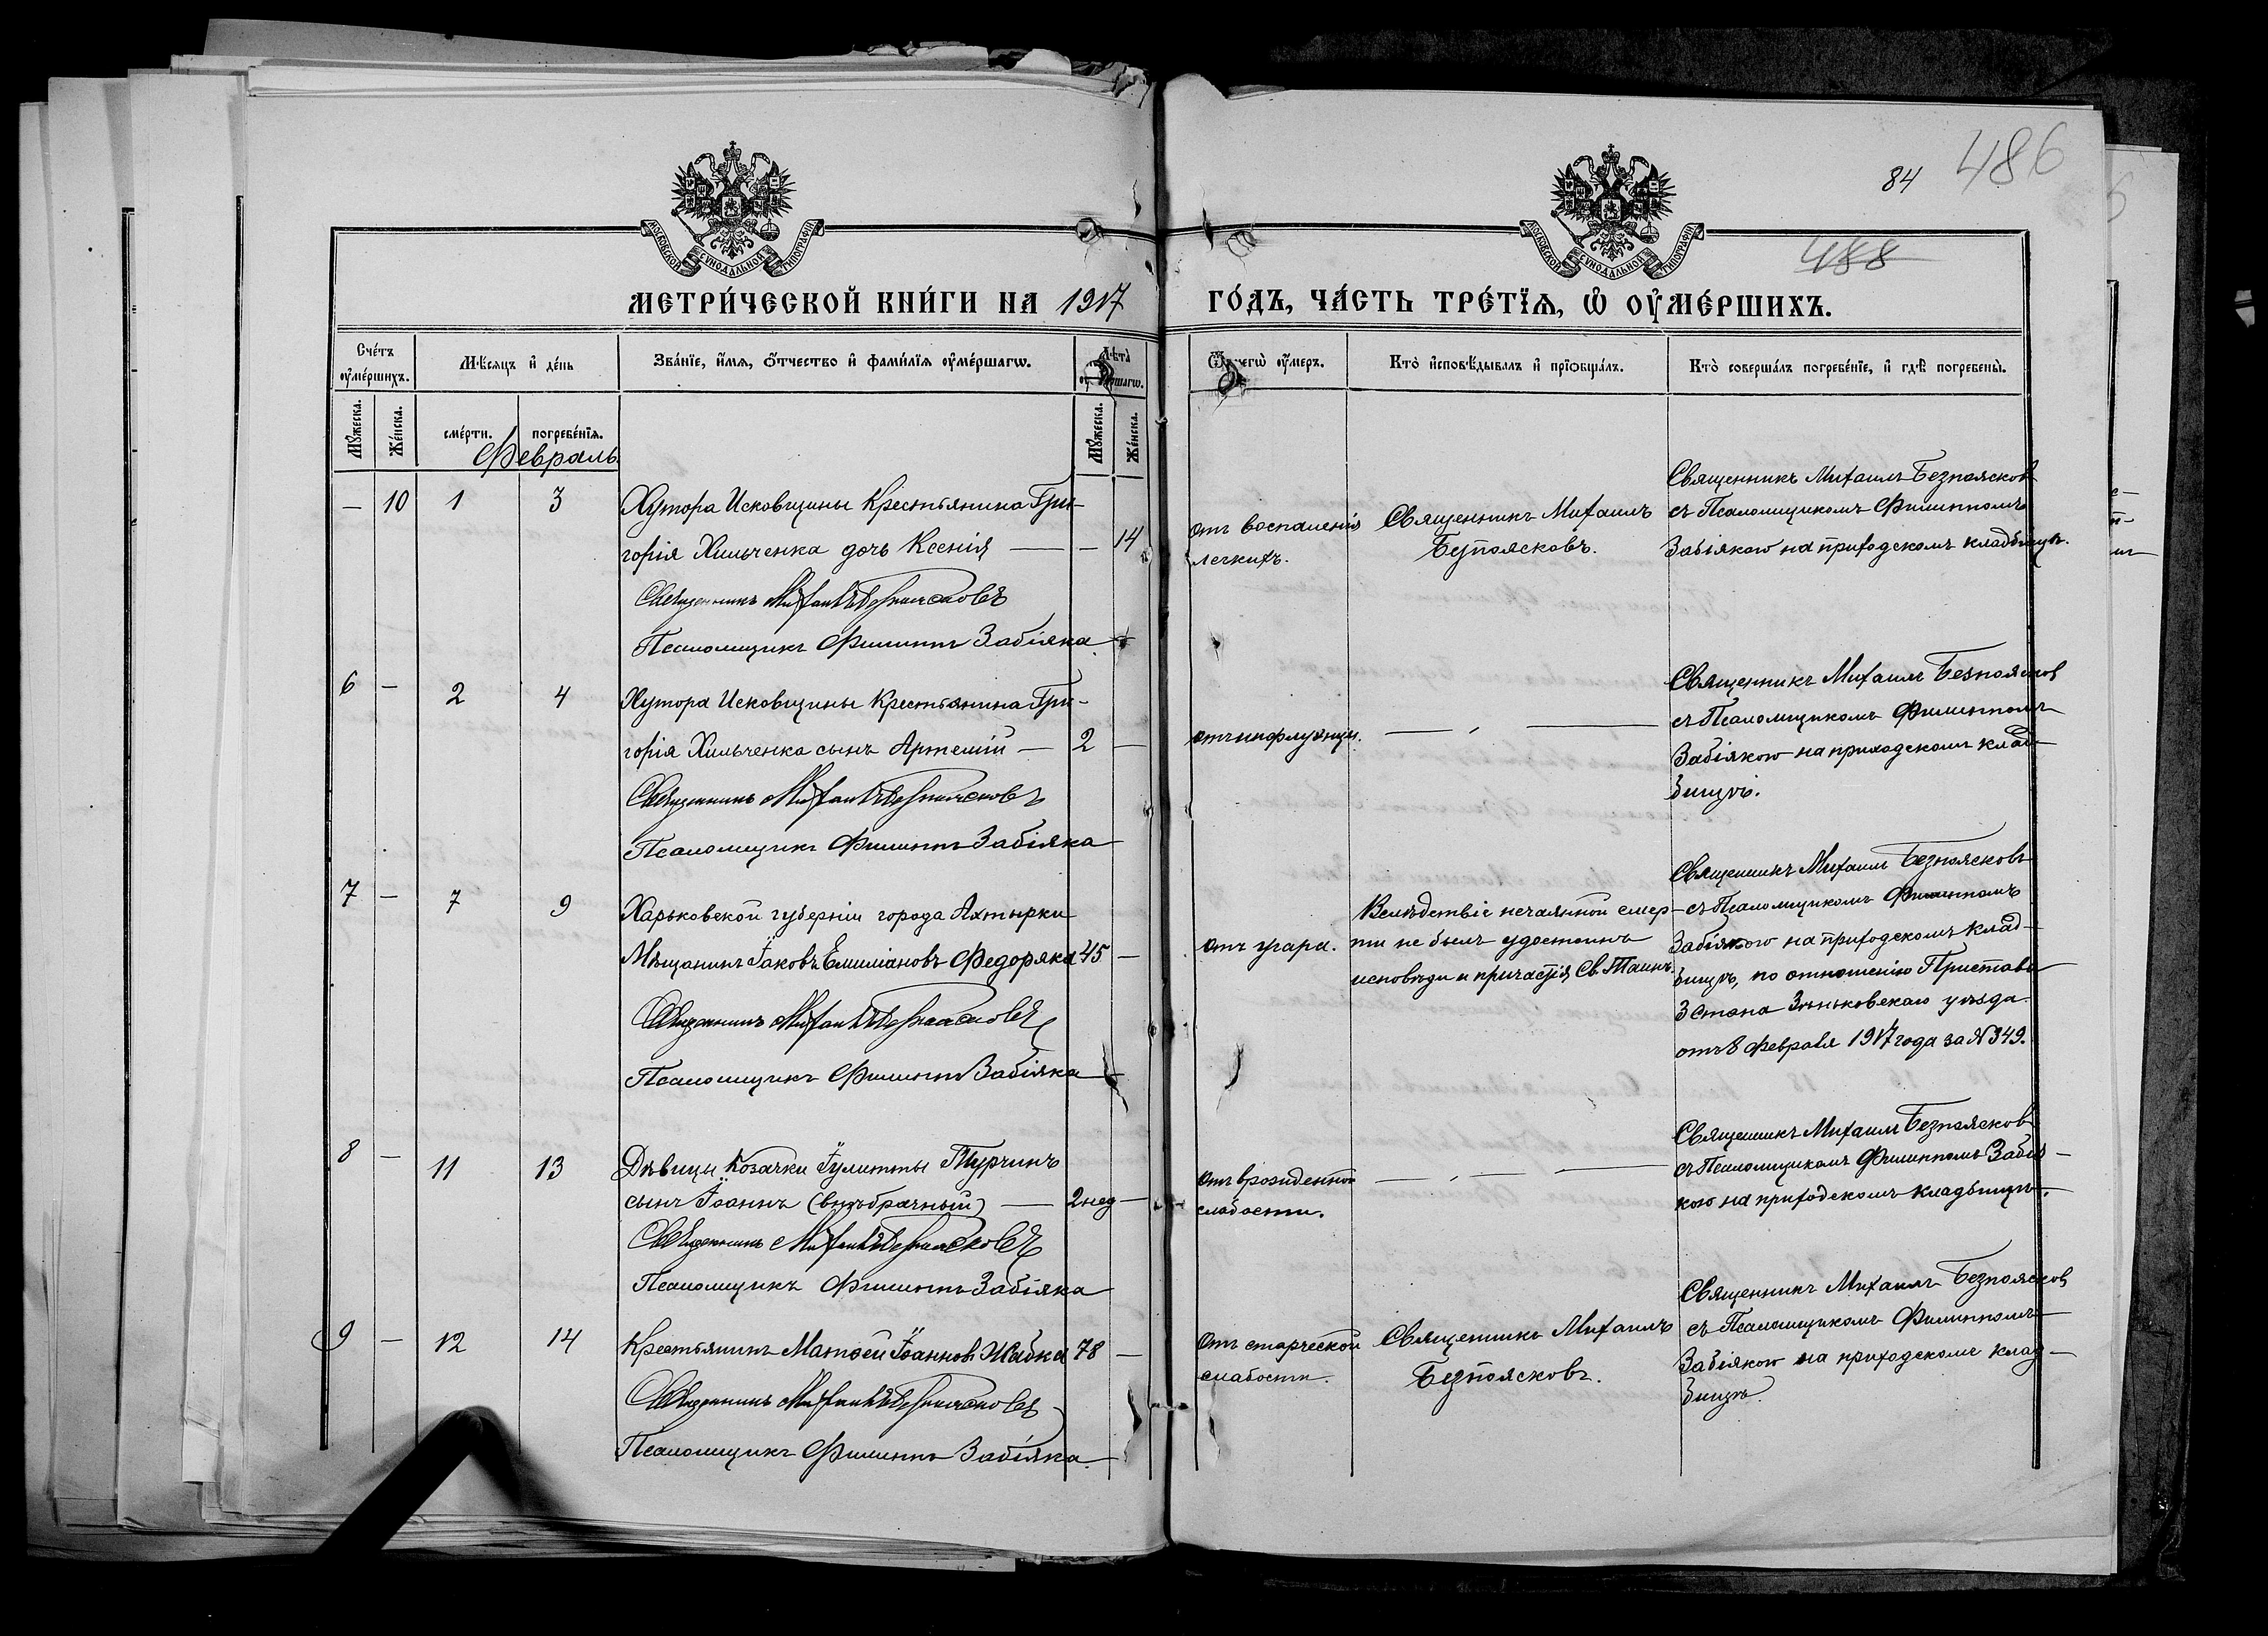 84 486
488
МОСКОВСКОЙ СУНОДАЛЬНОЙ ТИПОГРАФІИ
МОСКОВСКОЙ СУНОДАЛЬНОЙ ТИПОГРАФІИ
МЕТРИ́ЧЕСКОЙ КНИ́ГИ НА 1917 ГО́ДЪ, ЧА́СТЬ ТРЕ́ТЇѦ, Ѡ҆ ОУ҆МЕ́РШИХЪ.
Сче́тъ оу҆ме́ршихъ.
Мѣ́сѧцъ и҆ де́нь
Зва́нїе, и҆́мѧ, ѻ҆́тчество и҆ фами́лїѧ оу҆ме́ршагѡ.
Лѣ́та
Ѿ чегѡ̀ оу҆́меръ.
Кто̀ и҆сповѣ́дывалъ и҆ прїѡбща́лъ.
Кто̀ соверша́лъ погребе́нїе, и҆ гдѣ̀ погребены̀.
Мꙋ́жеска.
Же́нска.
сме́рти.
погребе́нїѧ.
Мꙋ́жеска.
Же́нска.
Февраль
— 10 1 3 Хутора Исковщины Крестьянина Гри-
горія Хильченка дочь Ксенія — — 14
Священникъ Михаилъ Безпоясковъ
Псаломщикъ Филиппъ Забіяка
отъ воспаленія
легкихъ.
Священникъ Михаилъ
Безпоясковъ.
Священникъ Михаилъ Безпоясковъ
съ Псаломщикомъ Филиппомъ
Забіякою на приходскомъ кладбищѣ.
6 — 2 4 Хутора Исковщины Крестьянина Гри-
горія Хильченка сынъ Артемій — 2 —
Священникъ Михаилъ Безпоясковъ
Псаломщикъ Филиппъ Забіяка
отъ инфлуэнци.
— „ —
Священникъ Михаилъ Безпоясков
съ Псаломщикомъ Филиппомъ
Забіякою на приходскомъ клад-
бищѣ.
7 — 7 9 Харьковской губерніи города Ахтырки
Мѣщанинъ Іаковъ Емиліановъ Федоряка 45 —
Священникъ Михаилъ Безпоясковъ
Псаломщикъ Филиппъ Забіяка
отъ угара.
Вслѣдствіе нечаянной смер-
ти не былъ удостоинъ
исповѣди и причастія Св. Таинъ.
Священникъ Михаилъ Безпоясковъ
съ Псаломщикомъ Филиппомъ
Забіякою на приходскомъ клад-
бищѣ, по отношенію Пристава
3 Стана Зѣньковскаго уѣзда
отъ 8 февраля 1917 года за N 349.
8 — 11 13 Дѣвицы Козачки Іулитты Турчинъ
сынъ Іоаннъ (внѣбрачный) — 2 нед —
Священникъ Михаилъ Безпоясковъ
Псаломщикъ Филиппъ Забіяка
отъ врожденной
слабости.
— „ — —
Священникъ Михаилъ Безпоясковъ
съ Псаломщикомъ Филиппомъ Забія-
кою на приходскомъ кладбищѣ.
9 — 12 14 Крестьянинъ Матѳей Іоанновъ Жабка 78 —
Священникъ Михаилъ Безпоясковъ
Псаломщикъ Филиппъ Забіяка
Отъ старческой
слабости.
Священникъ Михаилъ
Безпоясковъ.
Священникъ Михаилъ Безпоясков
съ Псаломщикомъ Филиппомъ
Забіякою на приходскомъ клад-
бищѣ.